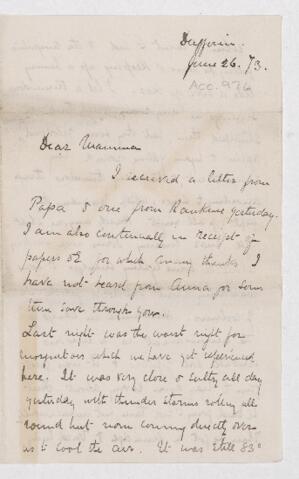 Dufferin.
June 26. 73.
Acc. 976
Dear Mamma
I received a letter from
Papa & one from Rankine yesterday.
I am also continually in receipt of
papers &c for which many thanks I
have not heard from Anna for some
time save through you.
Last night was the worst night for
mosquitoes which we have yet experienced
here. It was very close & sultry all day
yesterday with thunder storms rolling all
round but none coming directly over
us to cool the air. It was still 83°